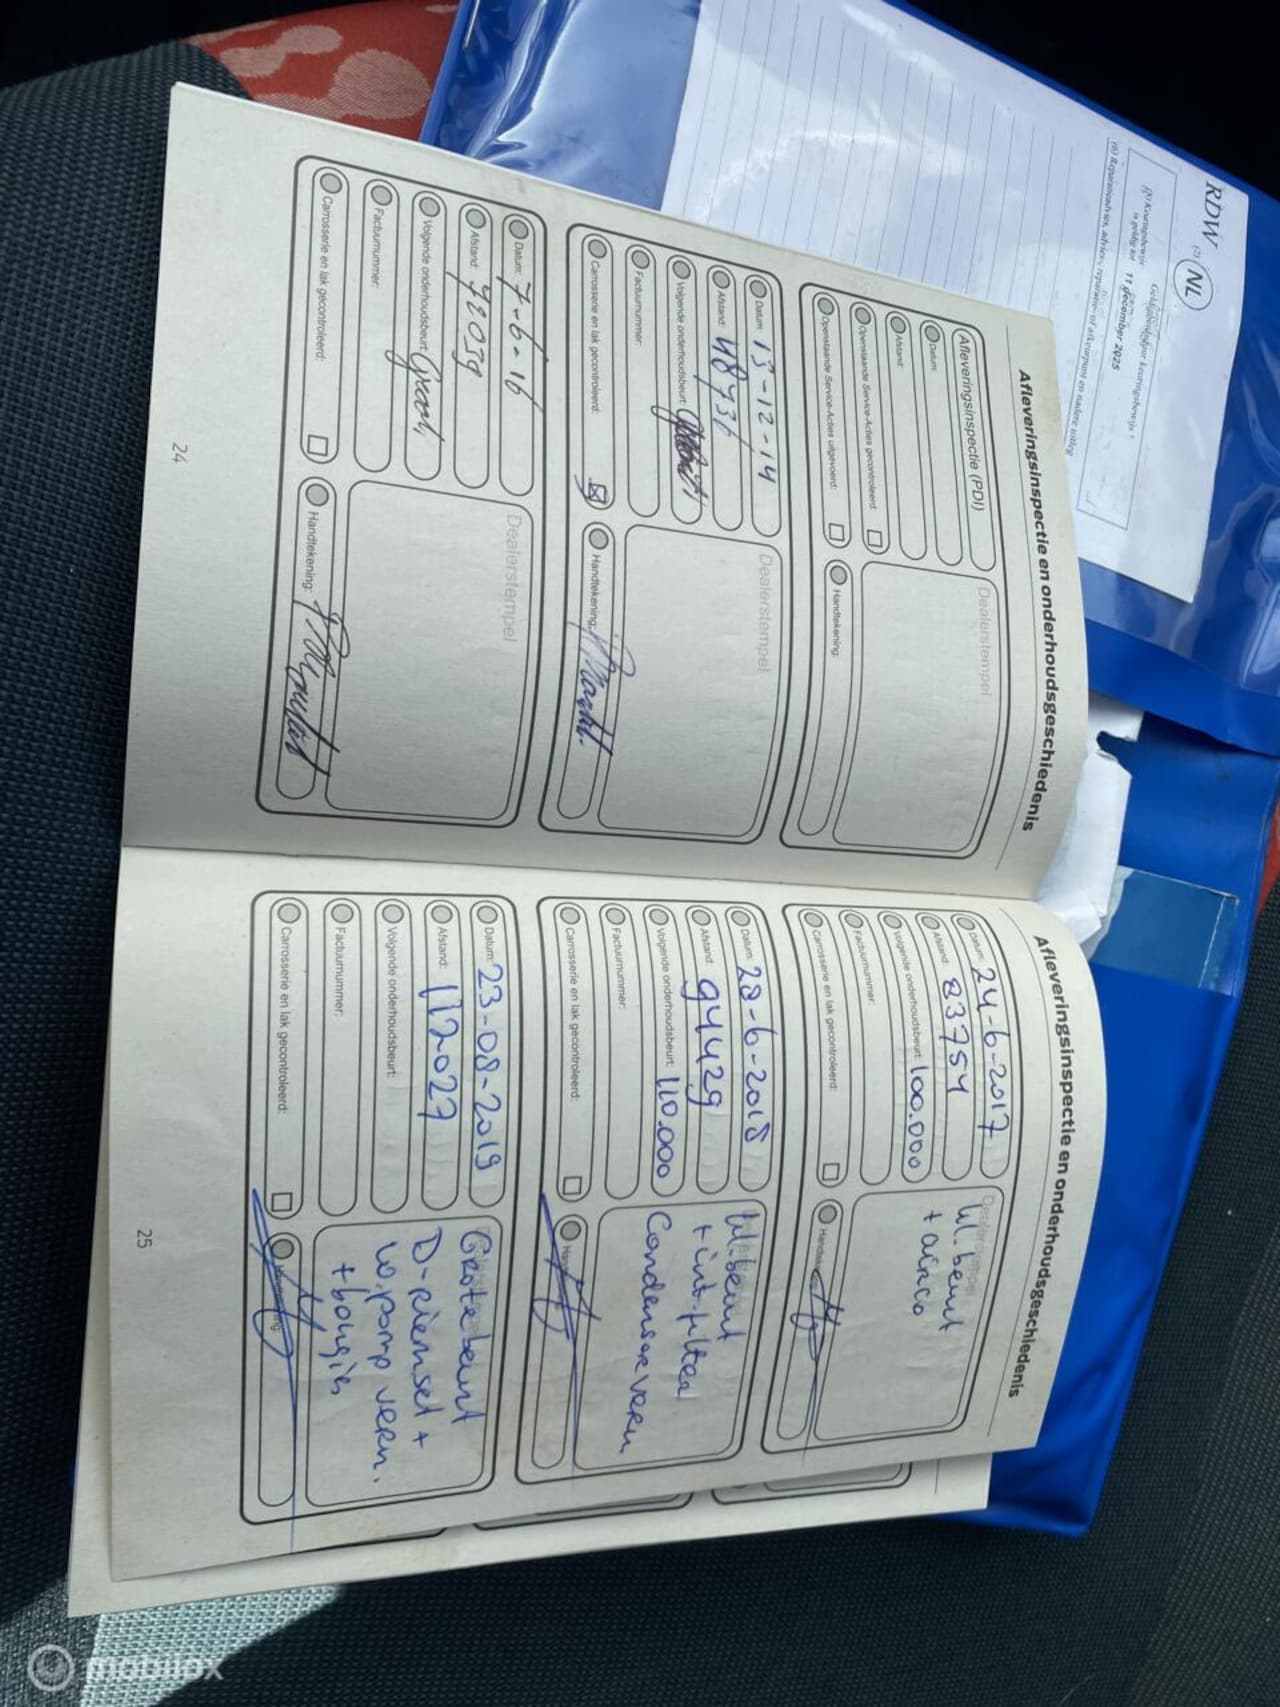 RDW
(2)
NL
Geldigheidsduur keuringsbewijs
(8) Keuringsbewijs
is geldig tot
11 december 2025
Afleveringsinspectie en onderhoudsgeschiedenis
Afleveringsinspectie (PDI)
Datum:
Afstand:
Openstaande Service-Acties gecontroleerd:
Openstaande Service-Acties uitgevoerd:
Dealerstempel
Handtekening:
Datum: 15-12-14
Afstand: 48736
Volgende onderhoudsbeurt:
Factuurnummer:
Carrosserie en lak gecontroleerd:
Dealerstempel
Handtekening:
Datum: 7-6-16
Afstand: 72039
Volgende onderhoudsbeurt: Groot
Factuurnummer:
Carrosserie en lak gecontroleerd:
Dealerstempel
Handtekening:
24
Afleveringsinspectie en onderhoudsgeschiedenis
Datum: 24-6-2017
Afstand: 83754
Volgende onderhoudsbeurt: 100.000
Factuurnummer:
Carrosserie en lak gecontroleerd:
Kl. beurt
+ airco
Datum: 28-6-2018
Afstand: 94429
Volgende onderhoudsbeurt: 110.000
Factuurnummer:
Carrosserie en lak gecontroleerd:
Kl. beurt
+ int. filter
Condensor vern
Datum: 23-08-2019
Afstand: 112027
Volgende onderhoudsbeurt:
Factuurnummer:
Carrosserie en lak gecontroleerd:
Grote beurt
D-riemset +
W. pomp vern.
+ bougies
25
mobilox